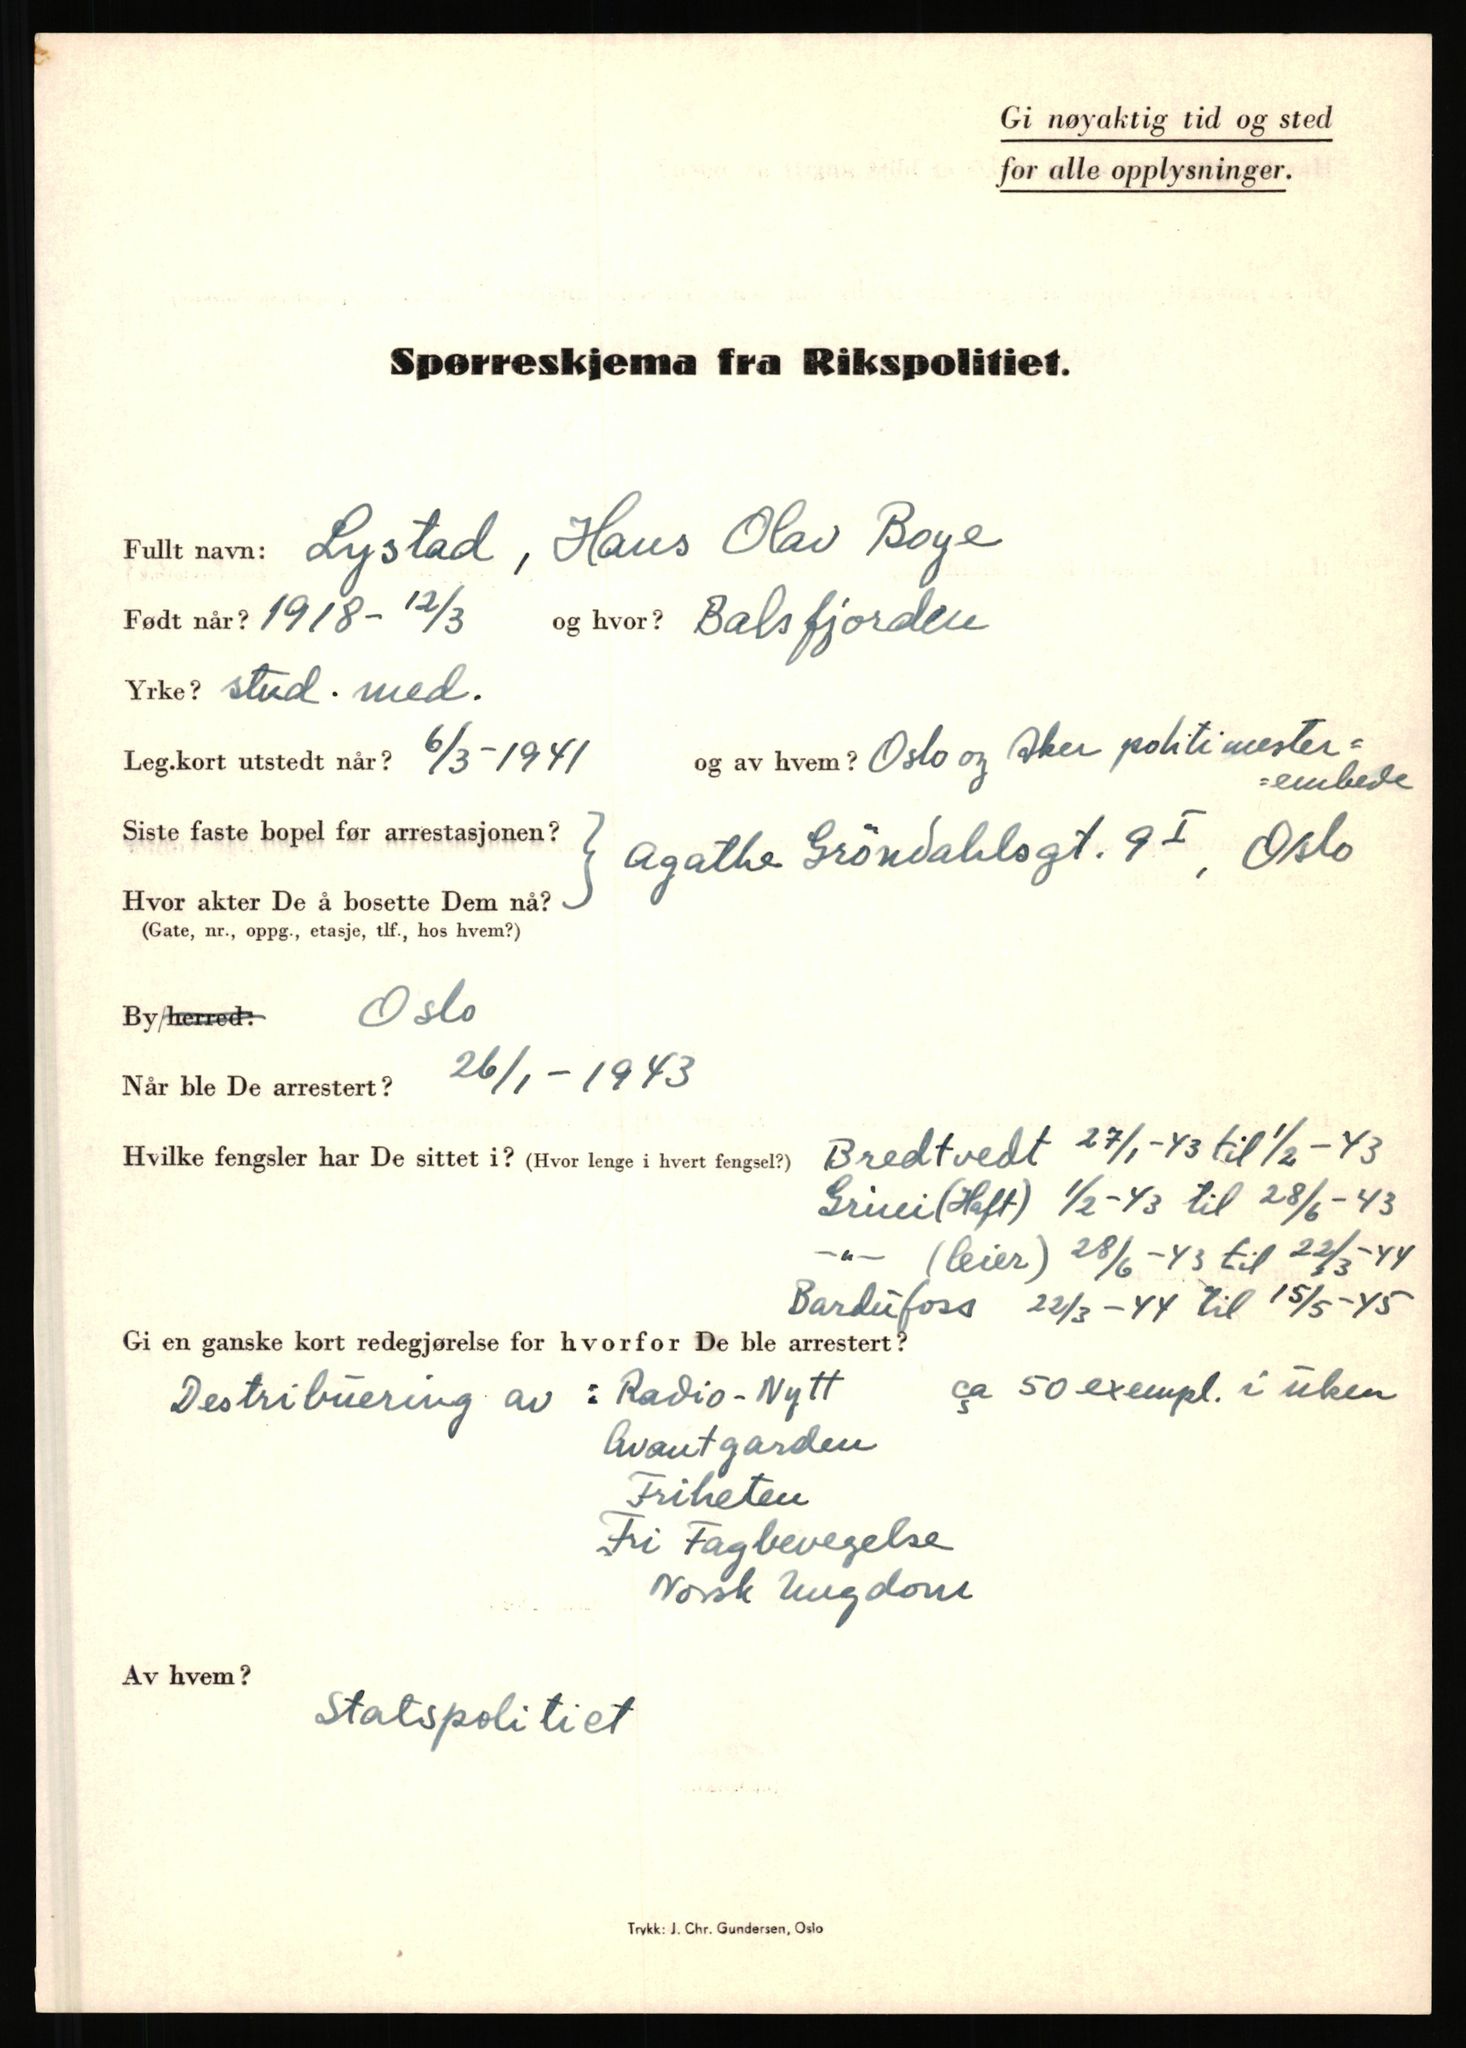 Gi nøyaktig tid og sted
for alle opplysninger.
Spørreskjema fra Rikspolitiet.
Fullt navn: Lystad, Hans Olav Boye
Født når? 1918 - 12/3 og hvor? Balsfjorden
Yrke? stud. med.
Leg.kort utstedt når? 6/3 - 1941 og av hvem? Oslo og Aker politimester=
=embede
Siste faste bopel før arrestasjonen?
Agathe Gröndahlsgt. 9 I, Oslo
Hvor akter De å bosette Dem nå?
(Gate, nr., oppg., etasje, tlf., hos hvem?)
By/herred: Oslo
Når ble De arrestert? 26/1 - 1943
Hvilke fengsler har De sittet i? (Hvor lenge i hvert fengsel?) Bredtvedt 27/1 - 43 til 1/2 - 43
Grini (Haft) 1/2 - 43 til 28/6 - 43
-"- (leier) 28/6 - 43 til 22/3 - 44
Bardufoss 22/3 - 44 til 15/5 - 45
Gi en ganske kort redegjørelse for hvorfor De ble arrestert?
Destribuering av : Radio-Nytt ca 50 exempl. i uken
Avantgarden
Friheten
Fri Fagbevegelse
Norsk Ungdom
Av hvem?
Statspolitiet
Trykk: J. Chr. Gundersen, Oslo